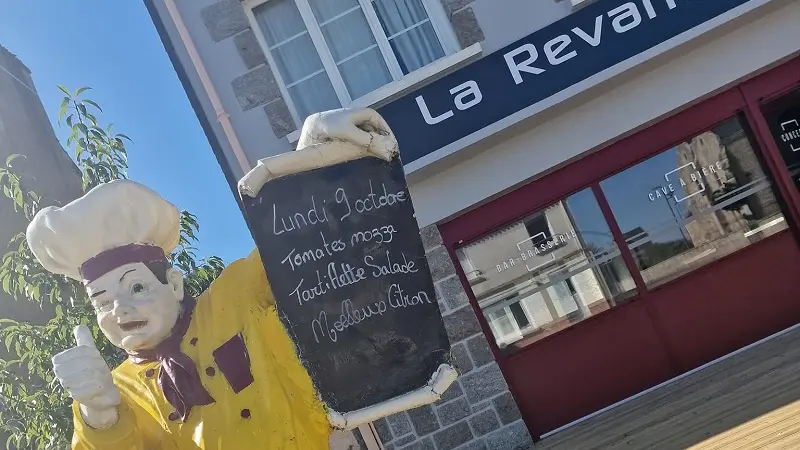 La Revan
Lundi 9 octobre
Tomates mozza
Tartiflette Salade
Moelleux Citron
BAR-BRASSERIE
CAVE À BIÈRE